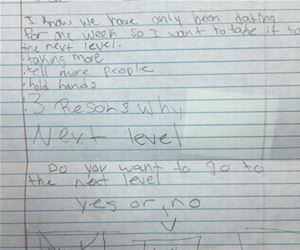 I know we have only been dating
for one week so I want to take it to
the next level.
· talking more
· tell more people
· hold hands
3 Resons why
Next level
Do you want to go to
the next level
yes or no